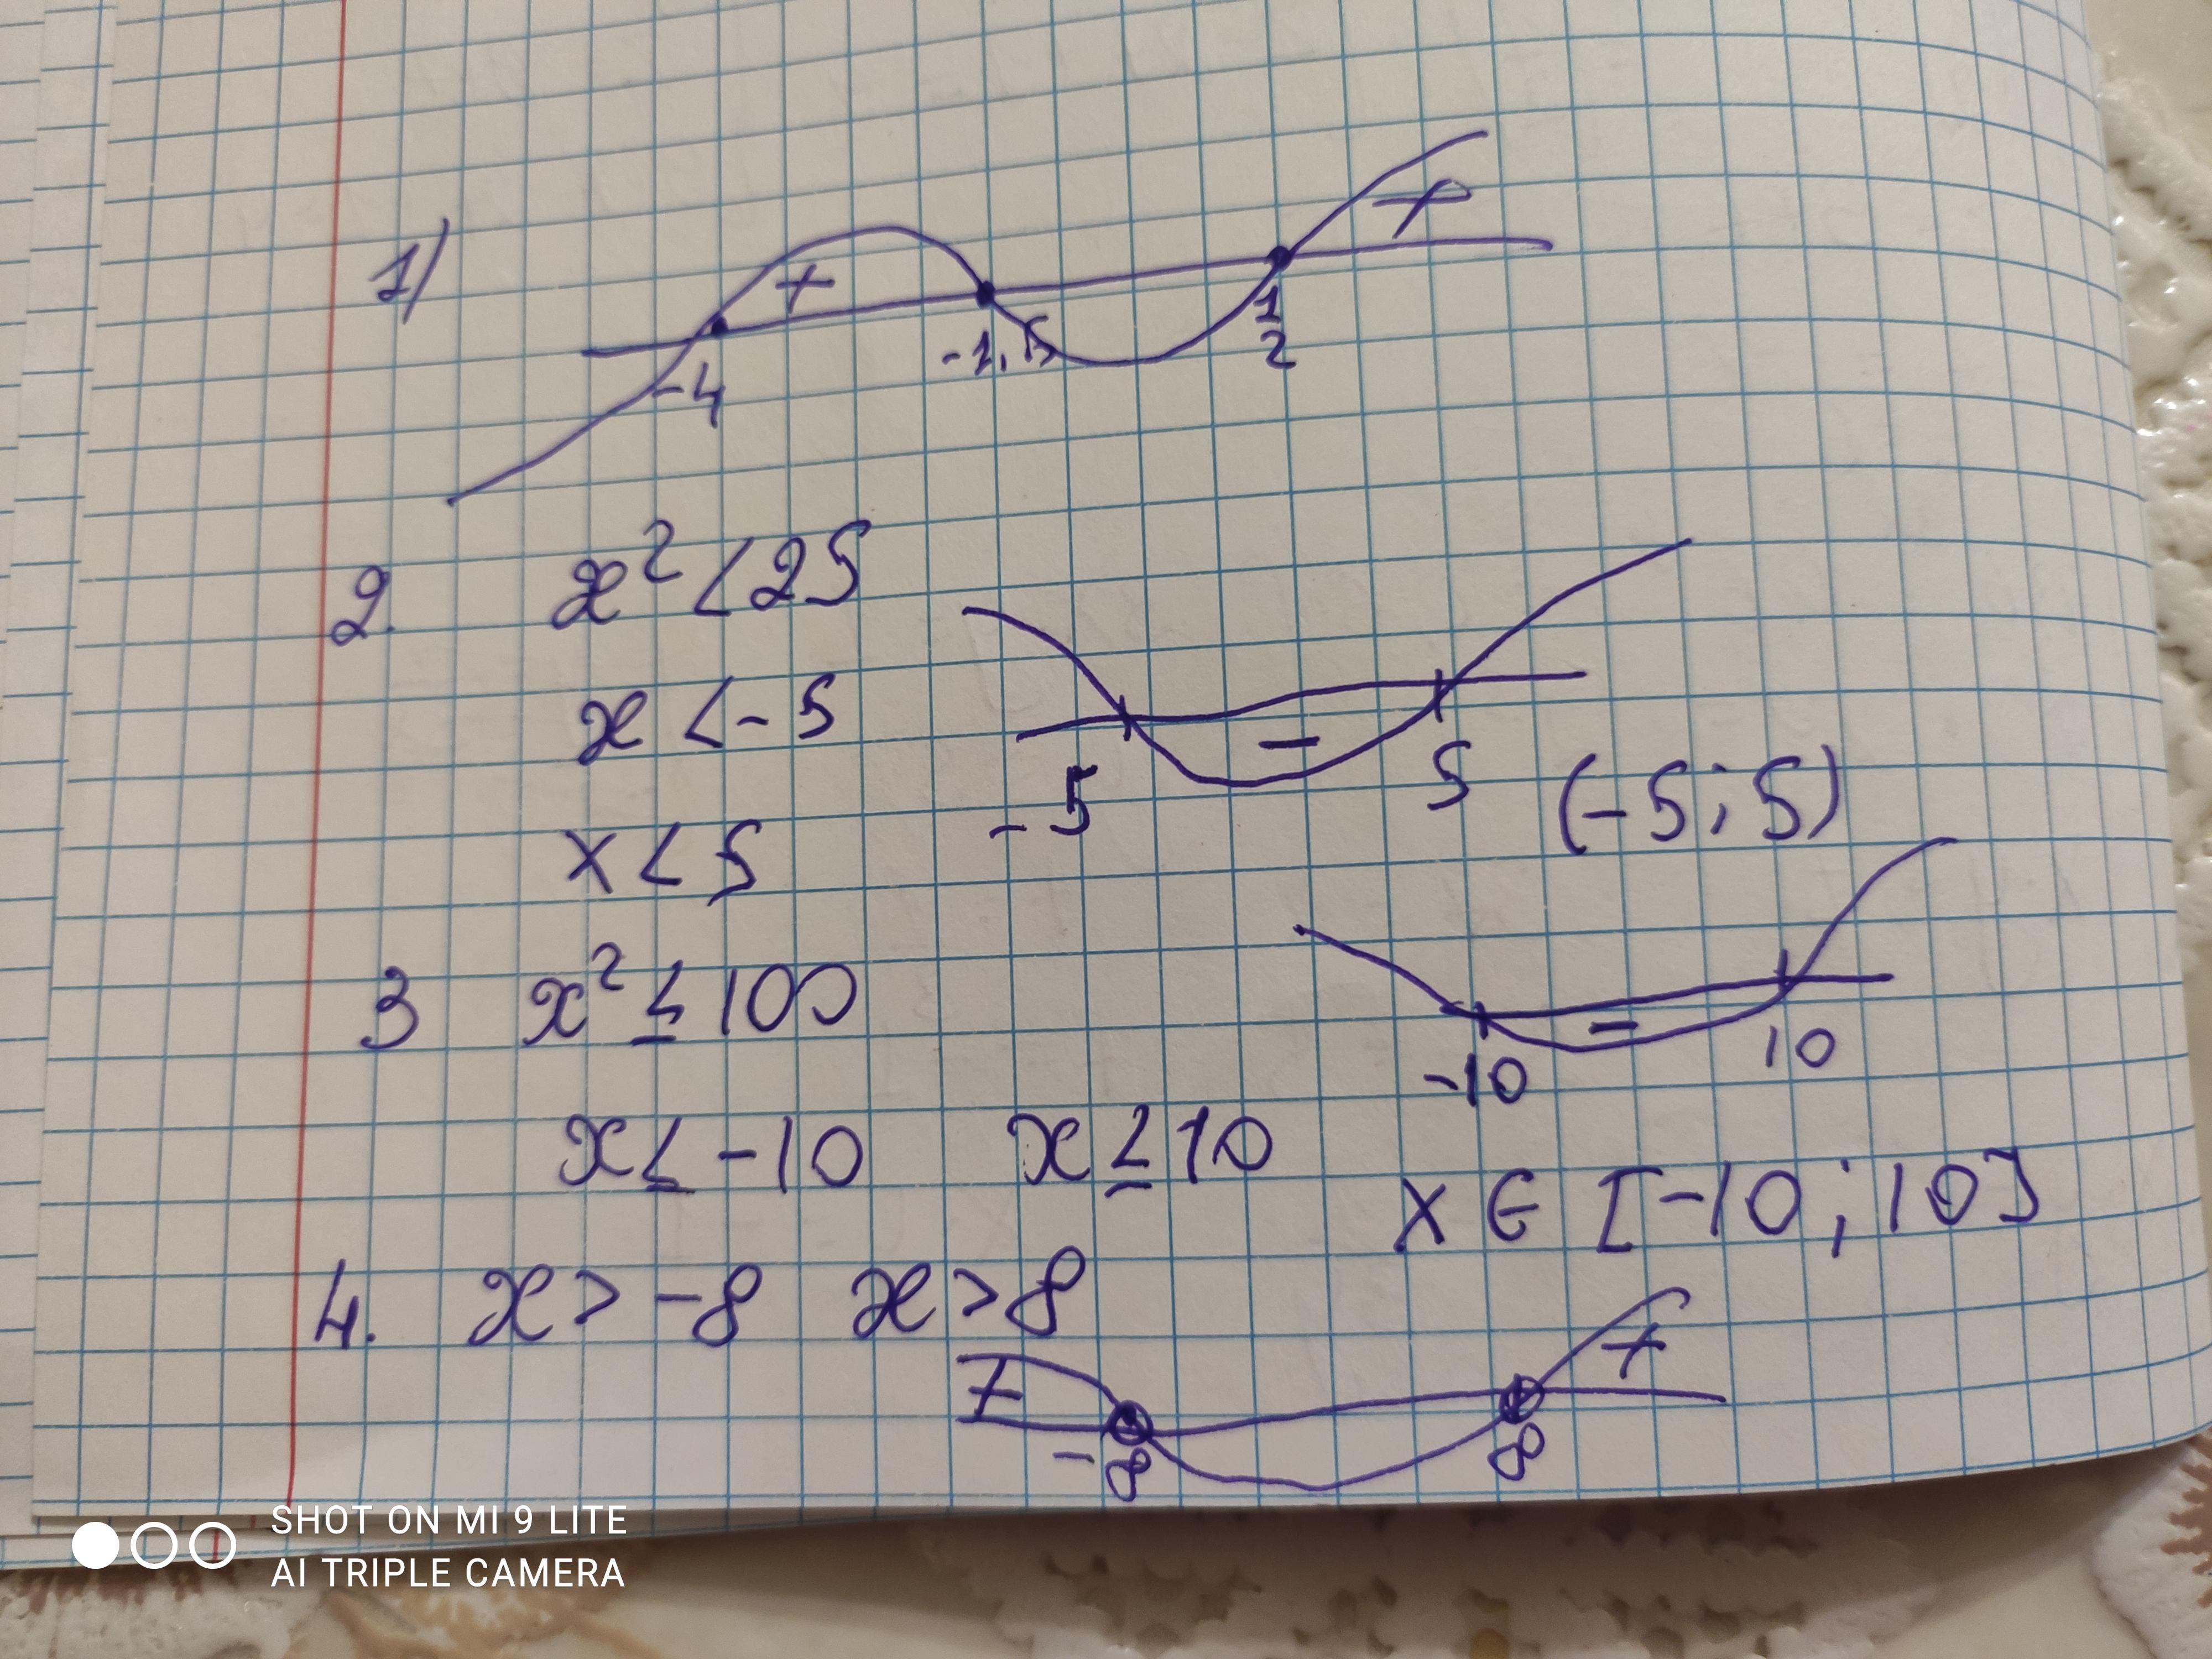 1)
+ +
-4 -1,5 1/2
2. x² < 25
x < -5
-
-5 5 (-5; 5)
x < 5
3 x² ≤ 100
-
-10 10
x ≤ -10 x ≤ 10
x ∈ [-10; 10]
4. x > -8 x > 8
+ +
-8 8
SHOT ON MI 9 LITE
AI TRIPLE CAMERA